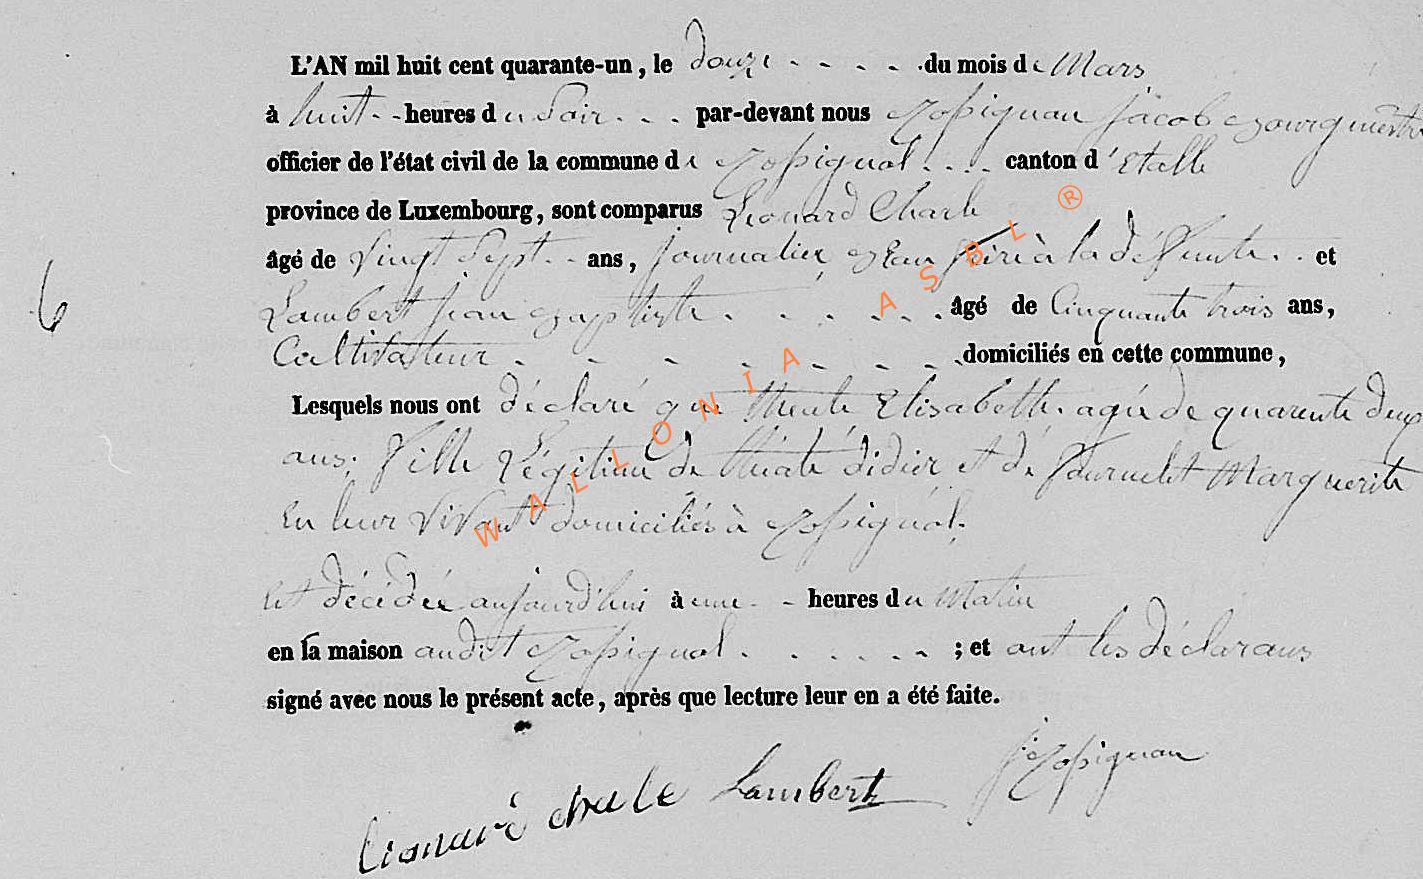 L'AN mil huit cent quarante-un, le douze du mois de Mars
à huit heures du Soir par-devant nous Rossignon Jacob Bourgmestre
officier de l'état civil de la commune de Rossignol canton d'Etalle
province de Luxembourg, sont comparus Léonard Charle
âgé de vingt Sept ans, journalier, Beau frère à la défunte et
Lambert jean Baptiste âgé de Cinquante trois ans,
6
Cultivateur domiciliés en cette commune,
Lesquels nous ont déclaré que Elisabeth, agée de quarente deux
ans, fille Légitime de didier et de Marguerite
En leur vivant domiciliés à Rossignol.
Est décédée aujourd'hui à une heures du Matin
en sa maison audit Rossignol ; et ont les déclarans
signé avec nous le présent acte, après que lecture leur en a été faite.
Léonard charle Lambert J. Rossignon
WALLONIA ASBL ®